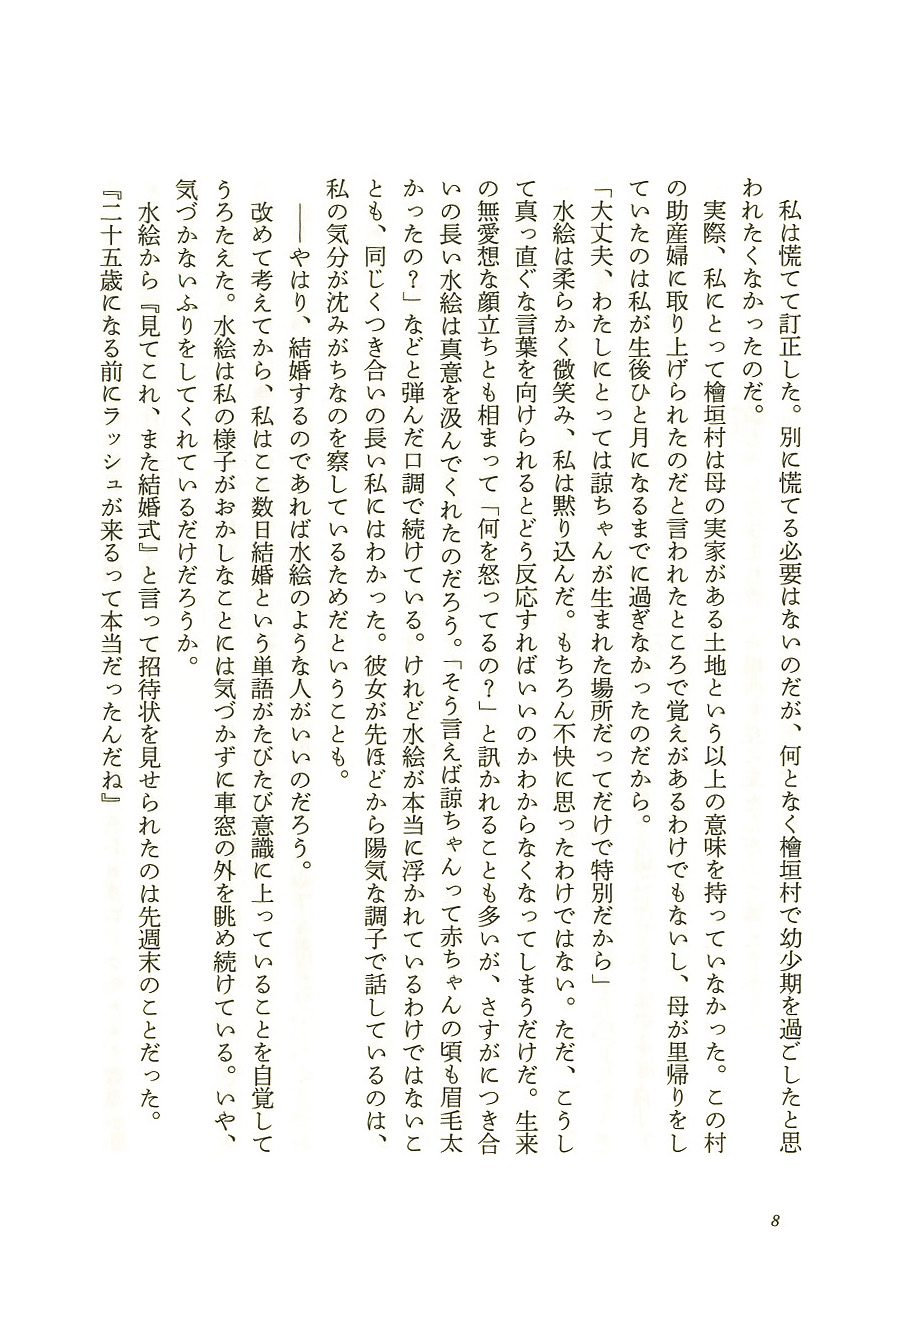 私は慌てて訂正した。別に慌てる必要はないのだが、何となく檜垣村で幼少期を過ごしたと思
われたくなかったのだ。
　実際、私にとって檜垣村は母の実家がある土地という以上の意味を持っていなかった。この村
の助産婦に取り上げられたのだと言われたところで覚えがあるわけでもないし、母が里帰りをし
ていたのは私が生後ひと月になるまでに過ぎなかったのだから。
「大丈夫、わたしにとっては諒ちゃんが生まれた場所だってだけで特別だから」
　水絵は柔らかく微笑み、私は黙り込んだ。もちろん不快に思ったわけではない。ただ、こうし
て真っ直ぐな言葉を向けられるとどう反応すればいいのかわからなくなってしまうだけだ。生来
の無愛想な顔立ちとも相まって「何を怒ってるの？」と訊かれることも多いが、さすがにつき合
いの長い水絵は真意を汲んでくれたのだろう。「そう言えば諒ちゃんって赤ちゃんの頃も眉毛太
かったの？」などと弾んだ口調で続けている。けれど水絵が本当に浮かれているわけではないこ
とも、同じくつき合いの長い私にはわかった。彼女が先ほどから陽気な調子で話しているのは、
私の気分が沈みがちなのを察しているためだということも。
　――やはり、結婚するのであれば水絵のような人がいいのだろう。
　改めて考えてから、私はここ数日結婚という単語がたびたび意識に上っていることを自覚して
うろたえた。水絵は私の様子がおかしなことには気づかずに車窓の外を眺め続けている。いや、
気づかないふりをしてくれているだけだろうか。
　水絵から『見てこれ、また結婚式』と言って招待状を見せられたのは先週末のことだった。
『二十五歳になる前にラッシュが来るって本当だったんだね』
8